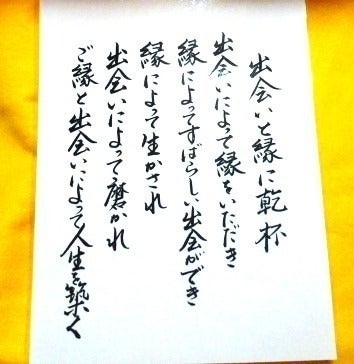 出会いと縁に乾杯
出会いによって縁をいただき
縁によってすばらしい出会ができ
縁によって生かされ
出会いによって磨かれ
ご縁と出会いによって人生を築く